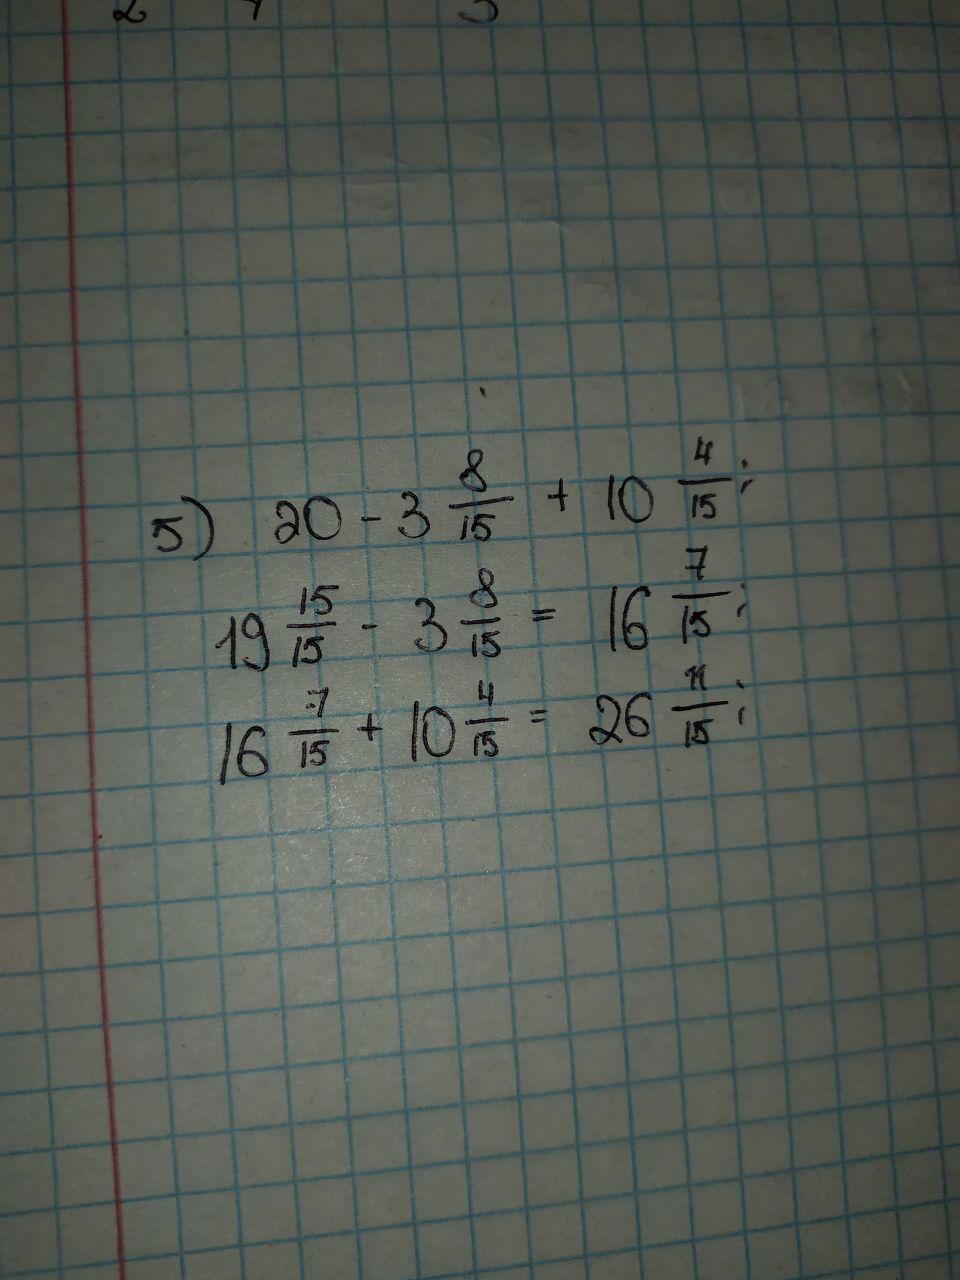 5) 20 - 3 8/15 + 10 4/15;
19 15/15 - 3 8/15 = 16 7/15;
16 7/15 + 10 4/15 = 26 11/15;